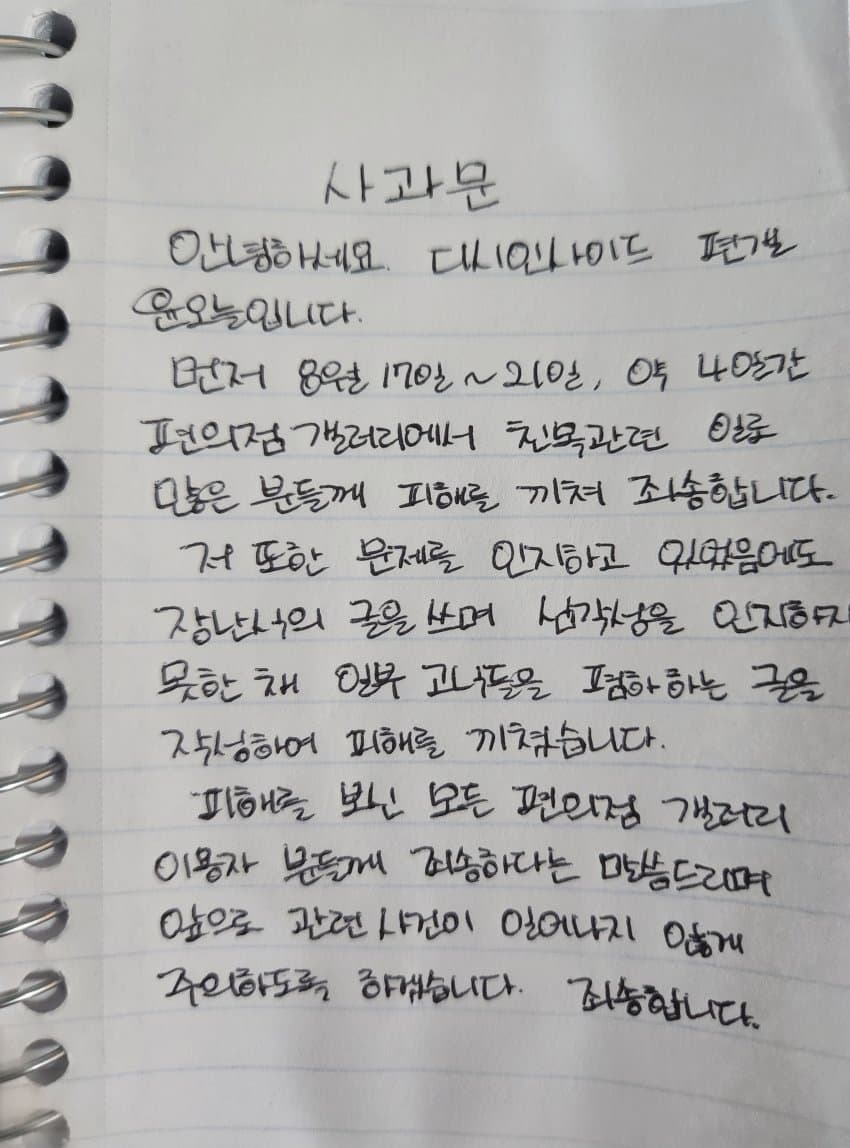 사과문
안녕하세요. 디시인사이드 편갤
윤오늘입니다.
먼저 8월 17일~21일, 약 4일간
편의점 갤러리에서 친목관련 일로
많은 분들께 피해를 끼쳐 죄송합니다.
저 또한 문제를 인지하고 있었음에도
장난식의 글을 쓰며 심각성을 인지하지
못한 채 일부 고닉들을 폄하하는 글을
작성하여 피해를 끼쳤습니다.
피해를 보신 모든 편의점 갤러리
이용자 분들께 죄송하다는 말씀드리며
앞으로 관련 사건이 일어나지 않게
주의하도록 하겠습니다. 죄송합니다.